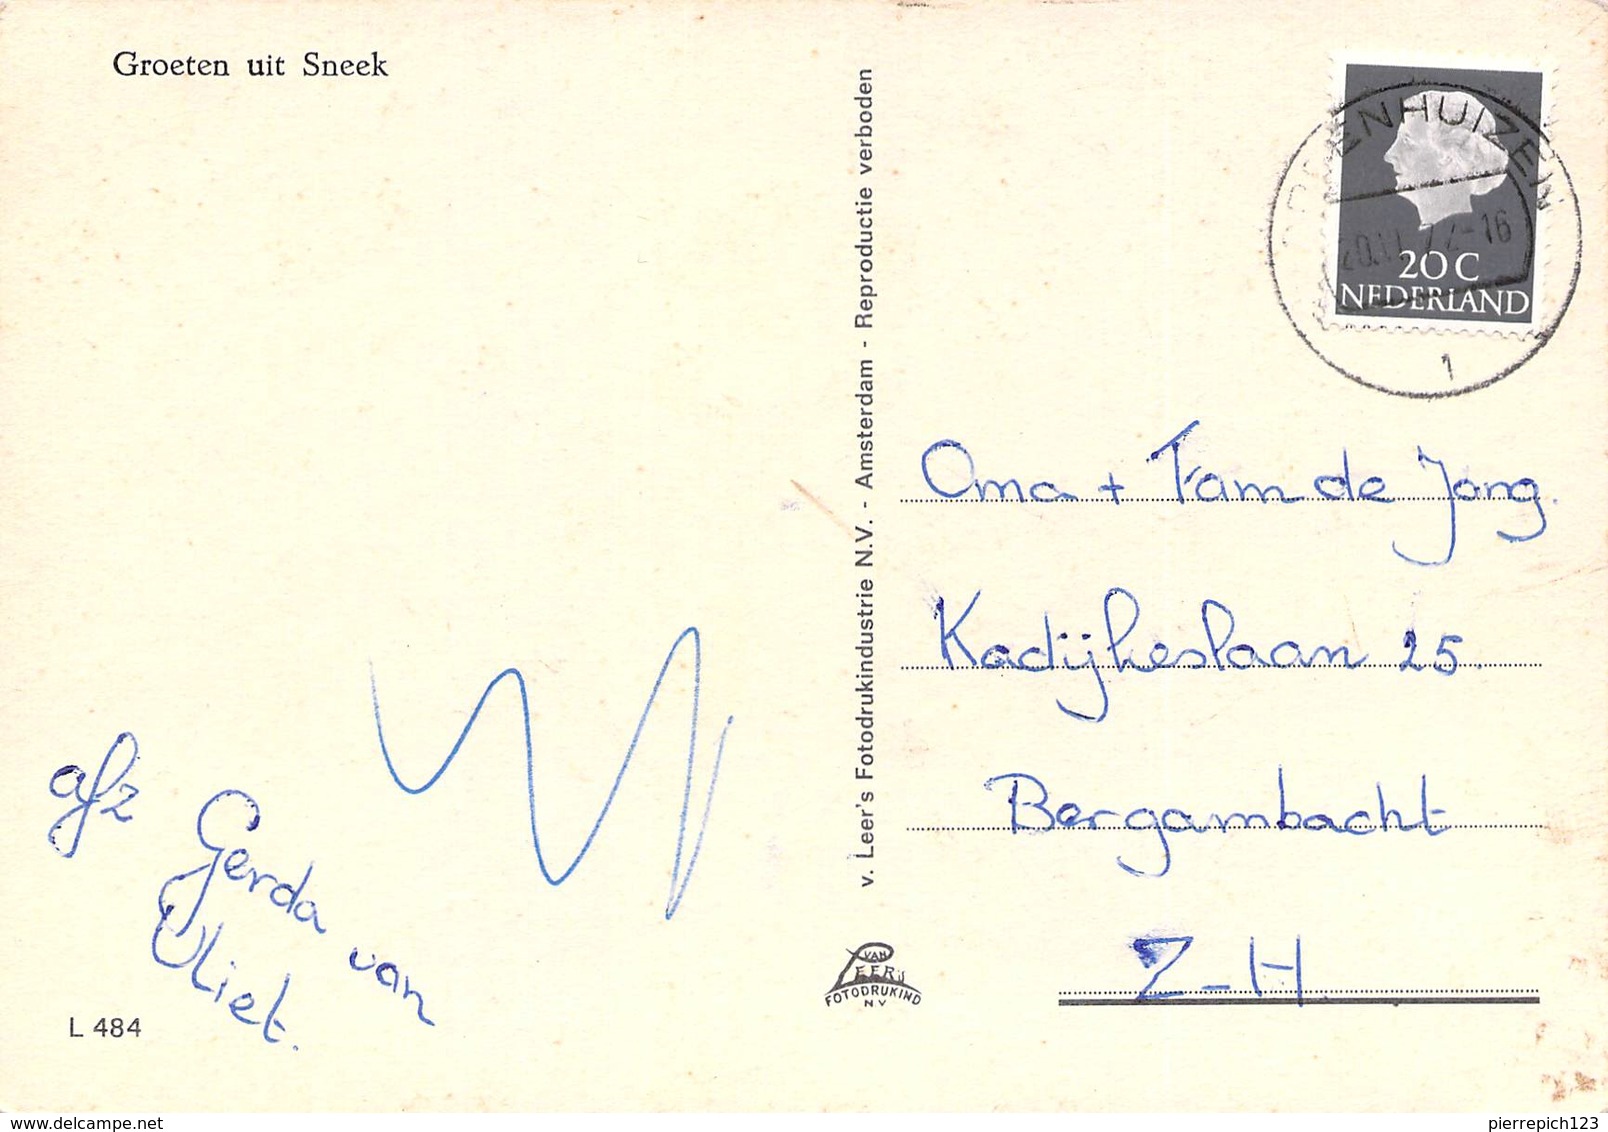 Groeten uit Sneek
20 C
NEDERLAND
1
Oma + Fam de Jong.
Kadijkeslaan 25.
Bergambacht
Z-H.
afz Gerda van
Vliet.
v. Leer's Fotodrukindustrie N.V. - Amsterdam - Reproductie verboden
VAN
LEER'S
FOTODRUKIND
N.V
L 484
www.delcampe.net
pierrepich123